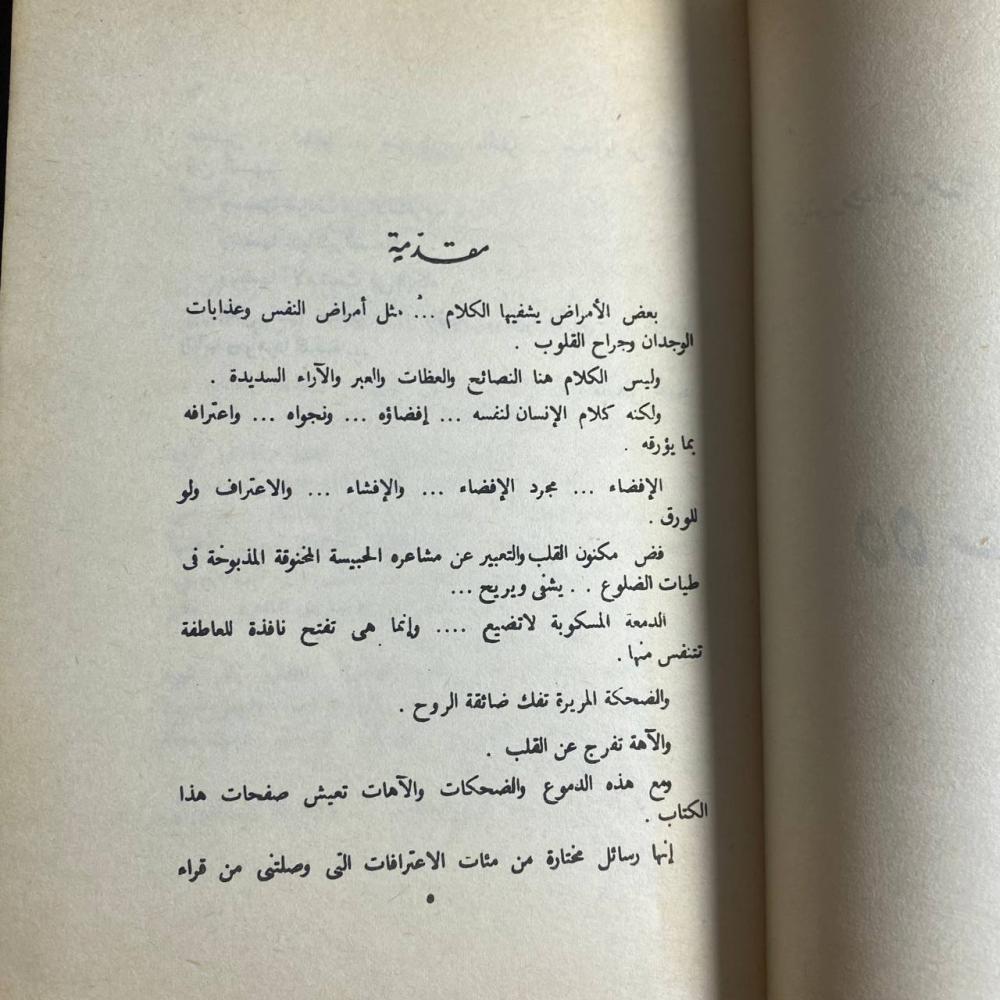 مقدّمة
بعض الأمراض يشفيها الكلام ... مثل أمراض النفس وعذابات
الوجدان وجراح القلوب .
وليس الكلام هنا النصائح والعظات والعبر والآراء السديدة .
ولكنه كلام الإنسان لنفسه ... إفضاؤه ... ونجواه ... واعترافه
بما يؤرقه .
الإفضاء ... مجرد الإفضاء ... والإفشاء ... والاعتراف ولو
للورق .
فض مكنون القلب والتعبير عن مشاعره الحبيسة المخنوقة المذبوحة فى
طيات الضلوع . . يشفى ويريح ...
الدمعة المسكوبة لاتضيع .... وإنما هى تفتح نافذة للعاطفة
تتنفس منها .
والضحكة المريرة تفك ضائقة الروح .
والآهة تفرج عن القلب .
ومع هذه الدموع والضحكات والآهات تعيش صفحات هذا
الكتاب .
إنها رسائل مختارة من مئات الاعترافات التى وصلتنى من قراء
٥